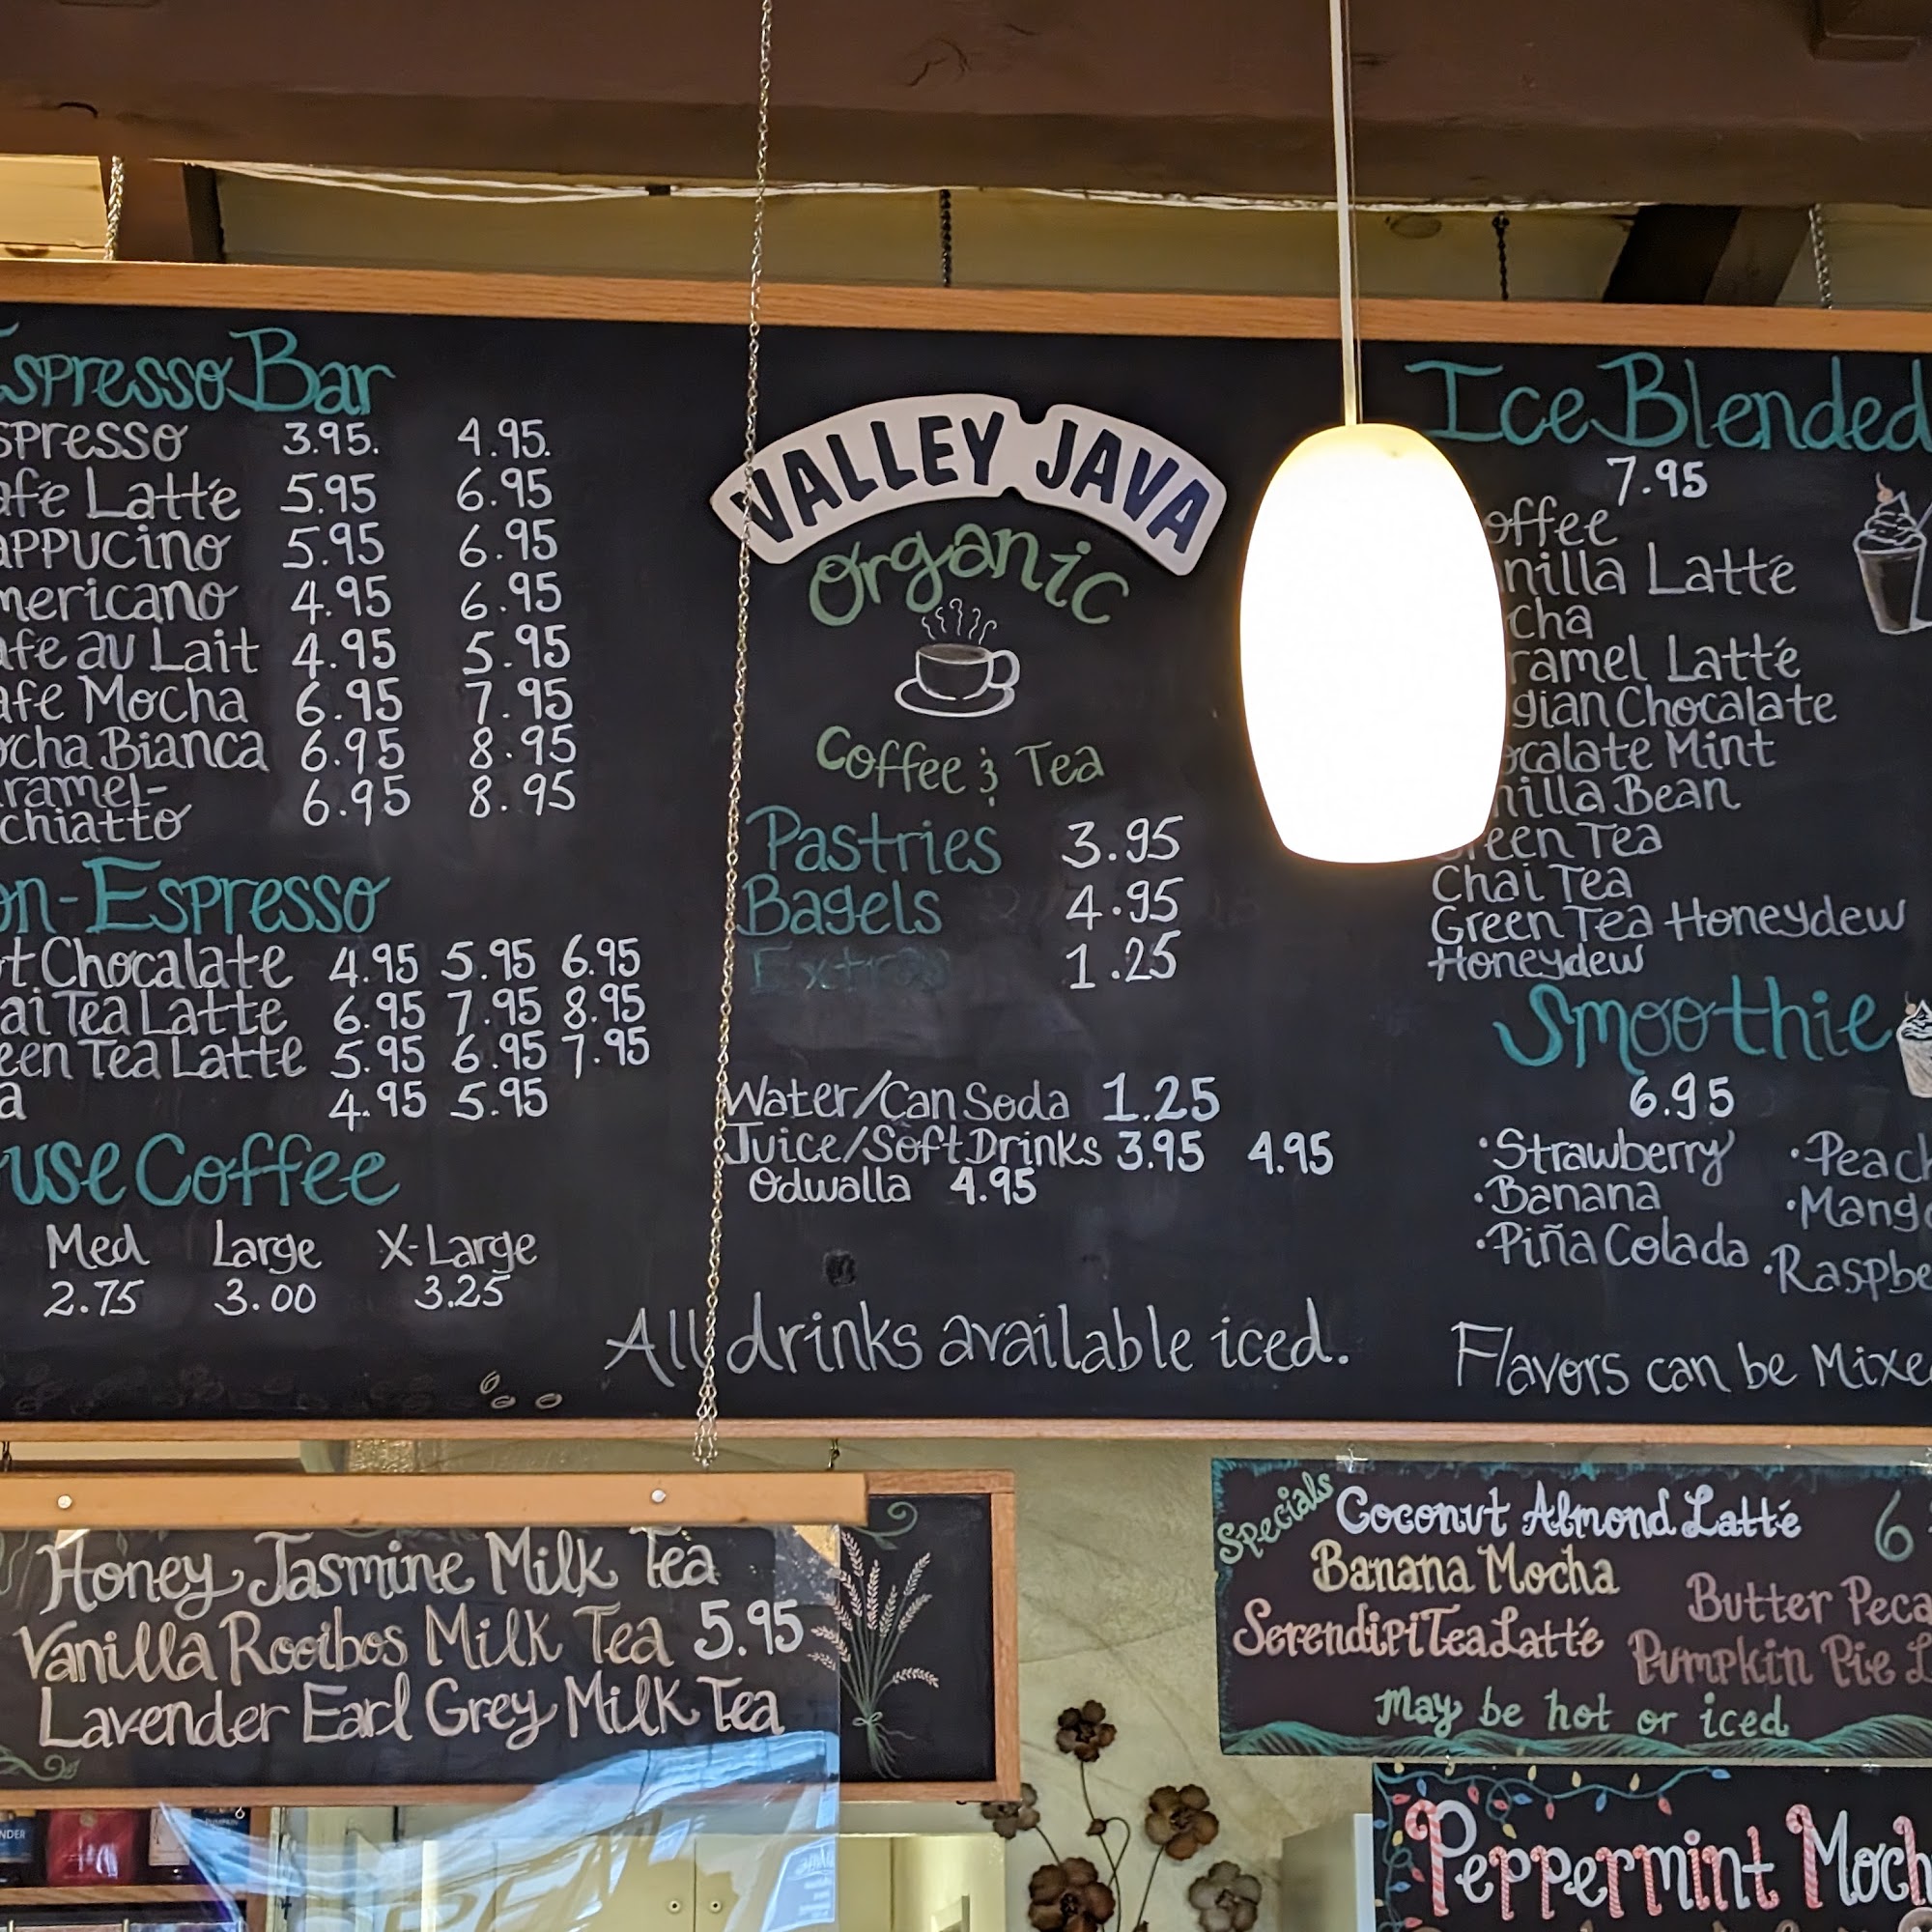 Espresso Bar
spresso 3.95. 4.95.
afé Latté 5.95 6.95
appucino 5.95 6.95
mericano 4.95 6.95
afe au Lait 4.95 5.95
afe Mocha 6.95 7.95
ocha Bianca 6.95 8.95
ramel-
chiatto 6.95 8.95
on-Espresso
t Chocalate 4.95 5.95 6.95
ai Tea Latte 6.95 7.95 8.95
een Tea Latte 5.95 6.95 7.95
a 4.95 5.95
use Coffee
Med Large X-Large
2.75 3.00 3.25
VALLEY JAVA
Organic
Coffee & Tea
Pastries 3.95
Bagels 4.95
Extras 1.25
Water/Can Soda 1.25
Juice/Soft Drinks 3.95 4.95
Odwalla 4.95
All drinks available iced.
Ice Blended
7.95
offee
nilla Latté
cha
ramel Latté
gian Chocalate
ocalate Mint
nilla Bean
Green Tea
Chai Tea
Green Tea Honeydew
Honeydew
Smoothie
6.95
·Strawberry ·Peach
·Banana ·Mango
·Piña Colada ·Raspbe
Flavors can be Mixed
Honey Jasmine Milk Tea
Vanilla Rooibos Milk Tea 5.95
Lavender Earl Grey Milk Tea
Specials
Coconut Almond Latté 6
Banana Mocha
Butter Peca
SerendipiTea Latté
Pumpkin Pie L
may be hot or iced
Peppermint Moch
NDER
PUMPKIN